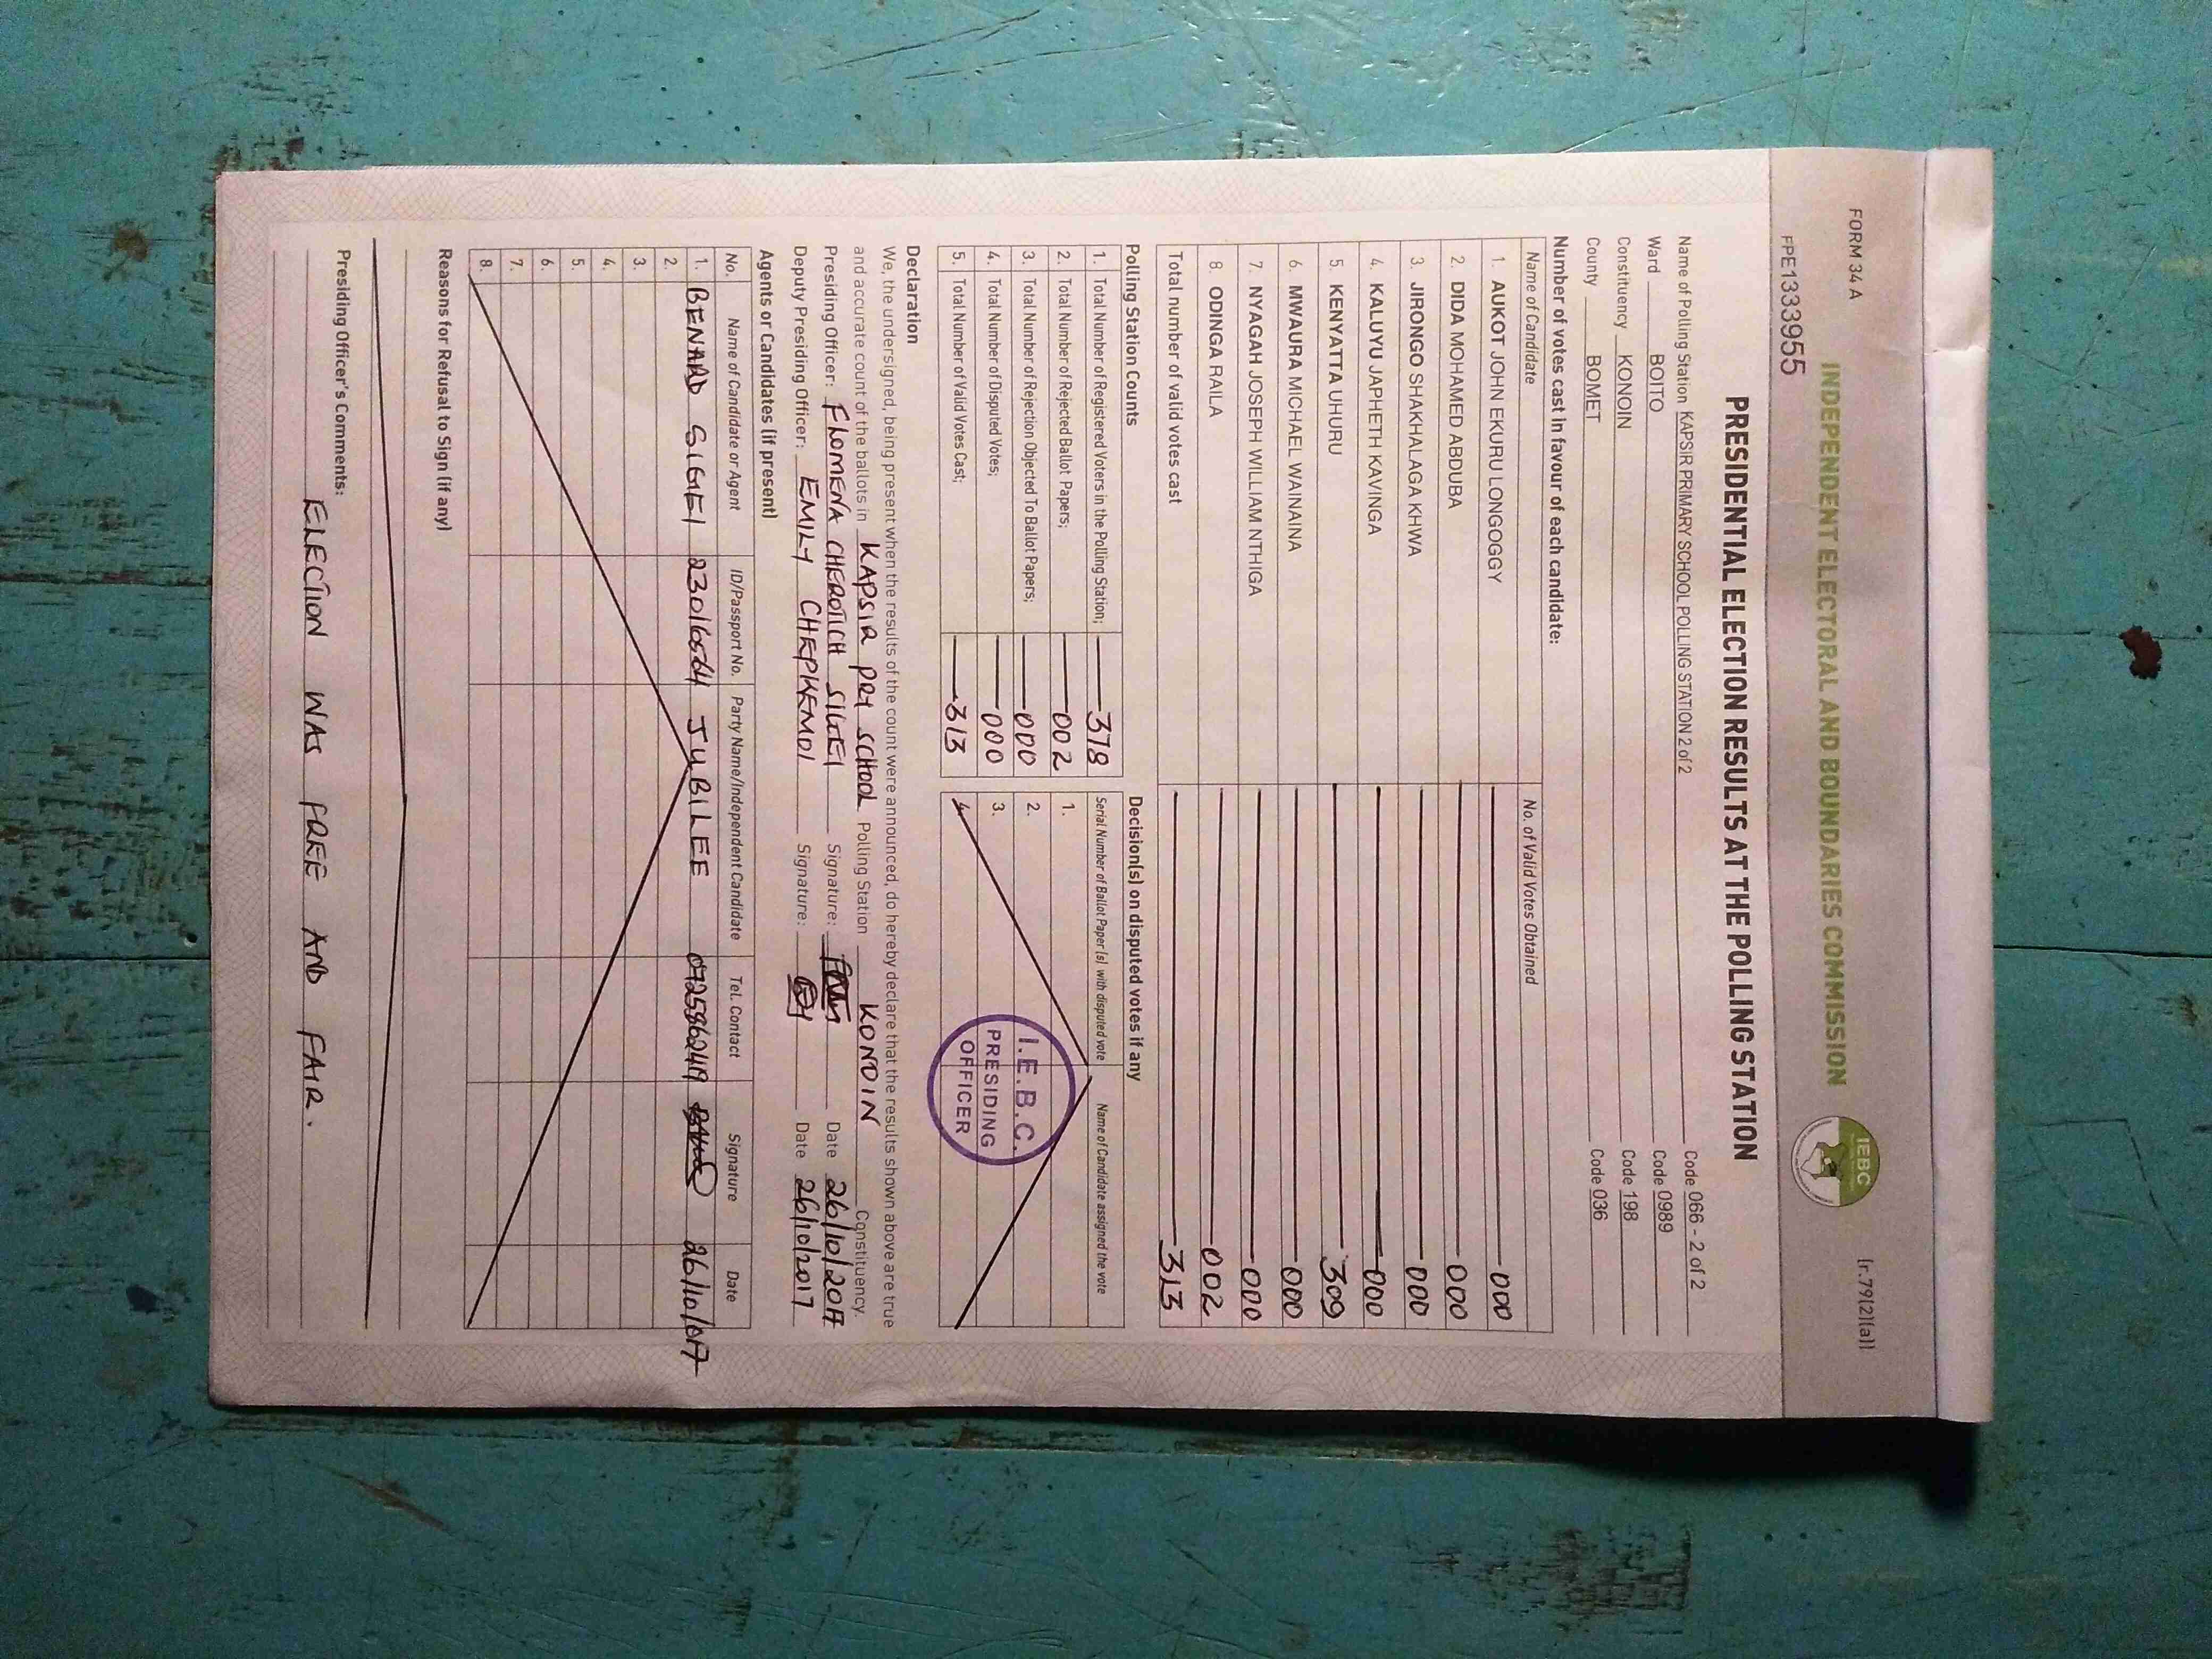 FORM 34 A
[r.79(2)(a)]
INDEPENDENT ELECTORAL AND BOUNDARIES COMMISSION
IEBC
FPE1333955
PRESIDENTIAL ELECTION RESULTS AT THE POLLING STATION
Name of Polling Station KAPSIR PRIMARY SCHOOL POLLING STATION 2 of 2 Code 066 - 2 of 2
Ward BOITO Code 0989
Constituency KONOIN Code 198
County BOMET Code 036
Number of votes cast in favour of each candidate:
Name of Candidate No. of Valid Votes Obtained
1. AUKOT JOHN EKURU LONGOGGY 000
2. DIDA MOHAMED ABDUBA 000
3. JIRONGO SHAKHALAGA KHWA 000
4. KALUYU JAPHETH KAVINGA 000
5. KENYATTA UHURU 309
6. MWAURA MICHAEL WAINAINA 000
7. NYAGAH JOSEPH WILLIAM NTHIGA 000
8. ODINGA RAILA 002
Total number of valid votes cast 313
Polling Station Counts
1. Total Number of Registered Voters in the Polling Station; 378
2. Total Number of Rejected Ballot Papers; 002
3. Total Number of Rejection Objected To Ballot Papers; 000
4. Total Number of Disputed Votes; 000
5. Total Number of Valid Votes Cast; 313
Decision(s) on disputed votes if any
Serial Number of Ballot Paper (s) with disputed vote Name of Candidate assigned the vote
1.
2.
3.
4.
I.E.B.C.
PRESIDING
OFFICER
Declaration
We, the undersigned, being present when the results of the count were announced, do hereby declare that the results shown above are true
and accurate count of the ballots in KAPSIR PRY SCHOOL Polling Station KONOIN Constituency.
Presiding Officer: FLOMENA CHEROTICH SIGEI Signature: Date 26/10/2017
Deputy Presiding Officer: EMILY CHEPKEMOI Signature: Date 26/10/2017
Agents or Candidates (if present)
No. Name of Candidate or Agent ID/Passport No. Party Name/Independent Candidate Tel. Contact Signature Date
1. BENARD SIGEI JUBILEE
2.
3.
4.
5.
6.
7.
8.
Reasons for Refusal to Sign (if any)
Presiding Officer's Comments:
ELECTION WAS FREE AND FAIR.